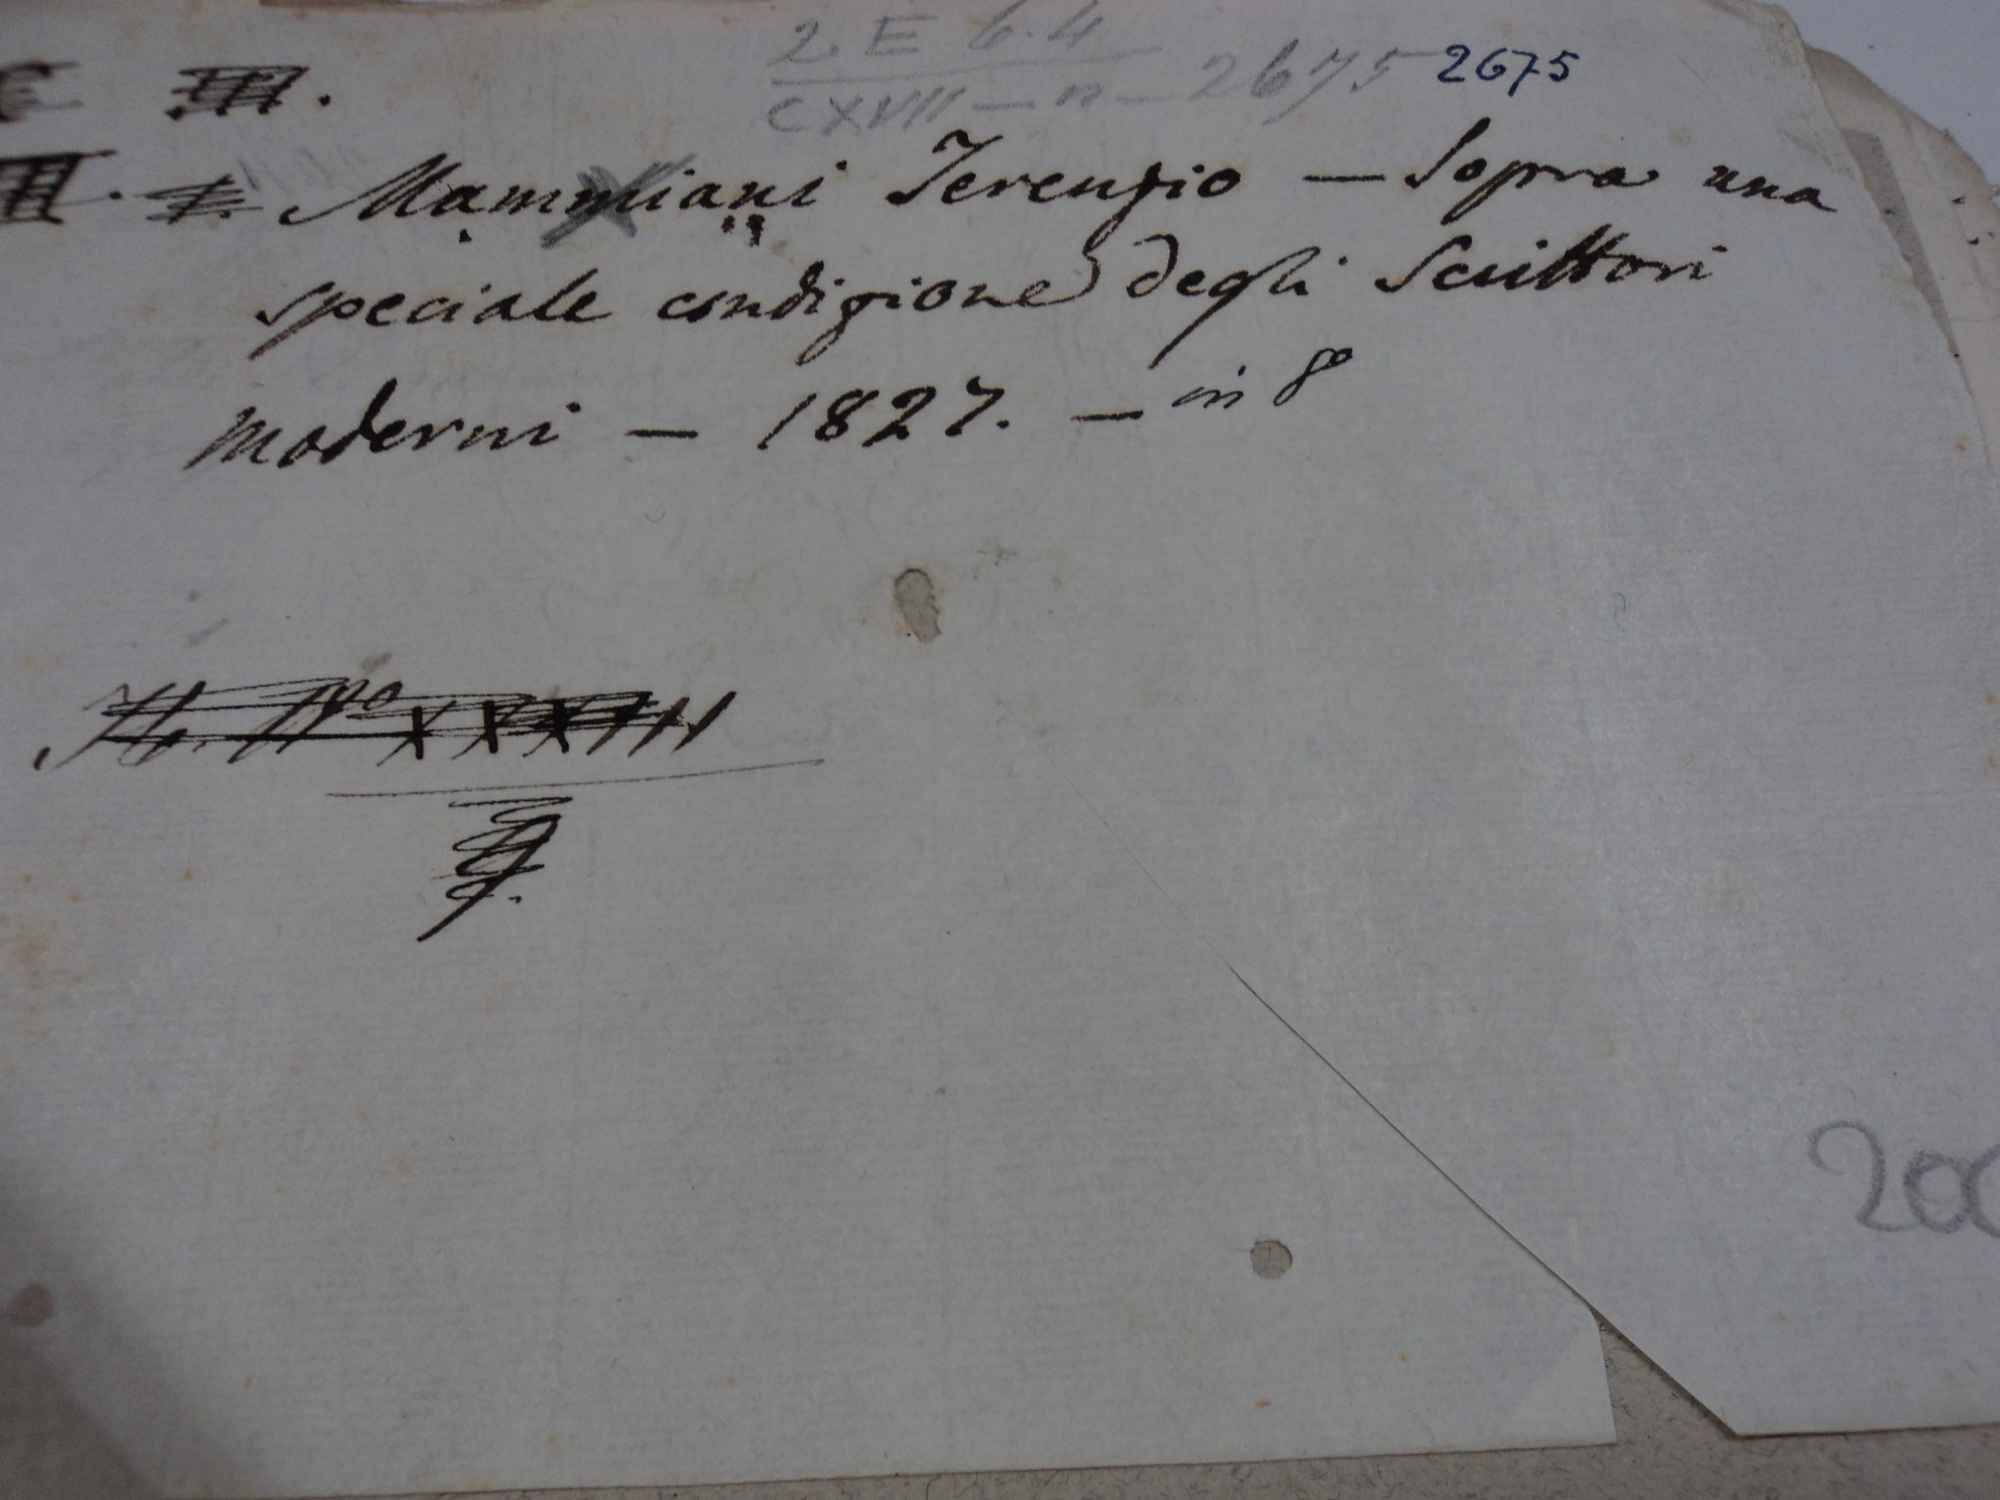 2 E 6.4
CXVII — n — 2675 2675
III.
II. I. Mammiani Terenzio — Sopra una
speciale condizione degli Scrittori
moderni — 1827. — in 8º
XXXIII
200